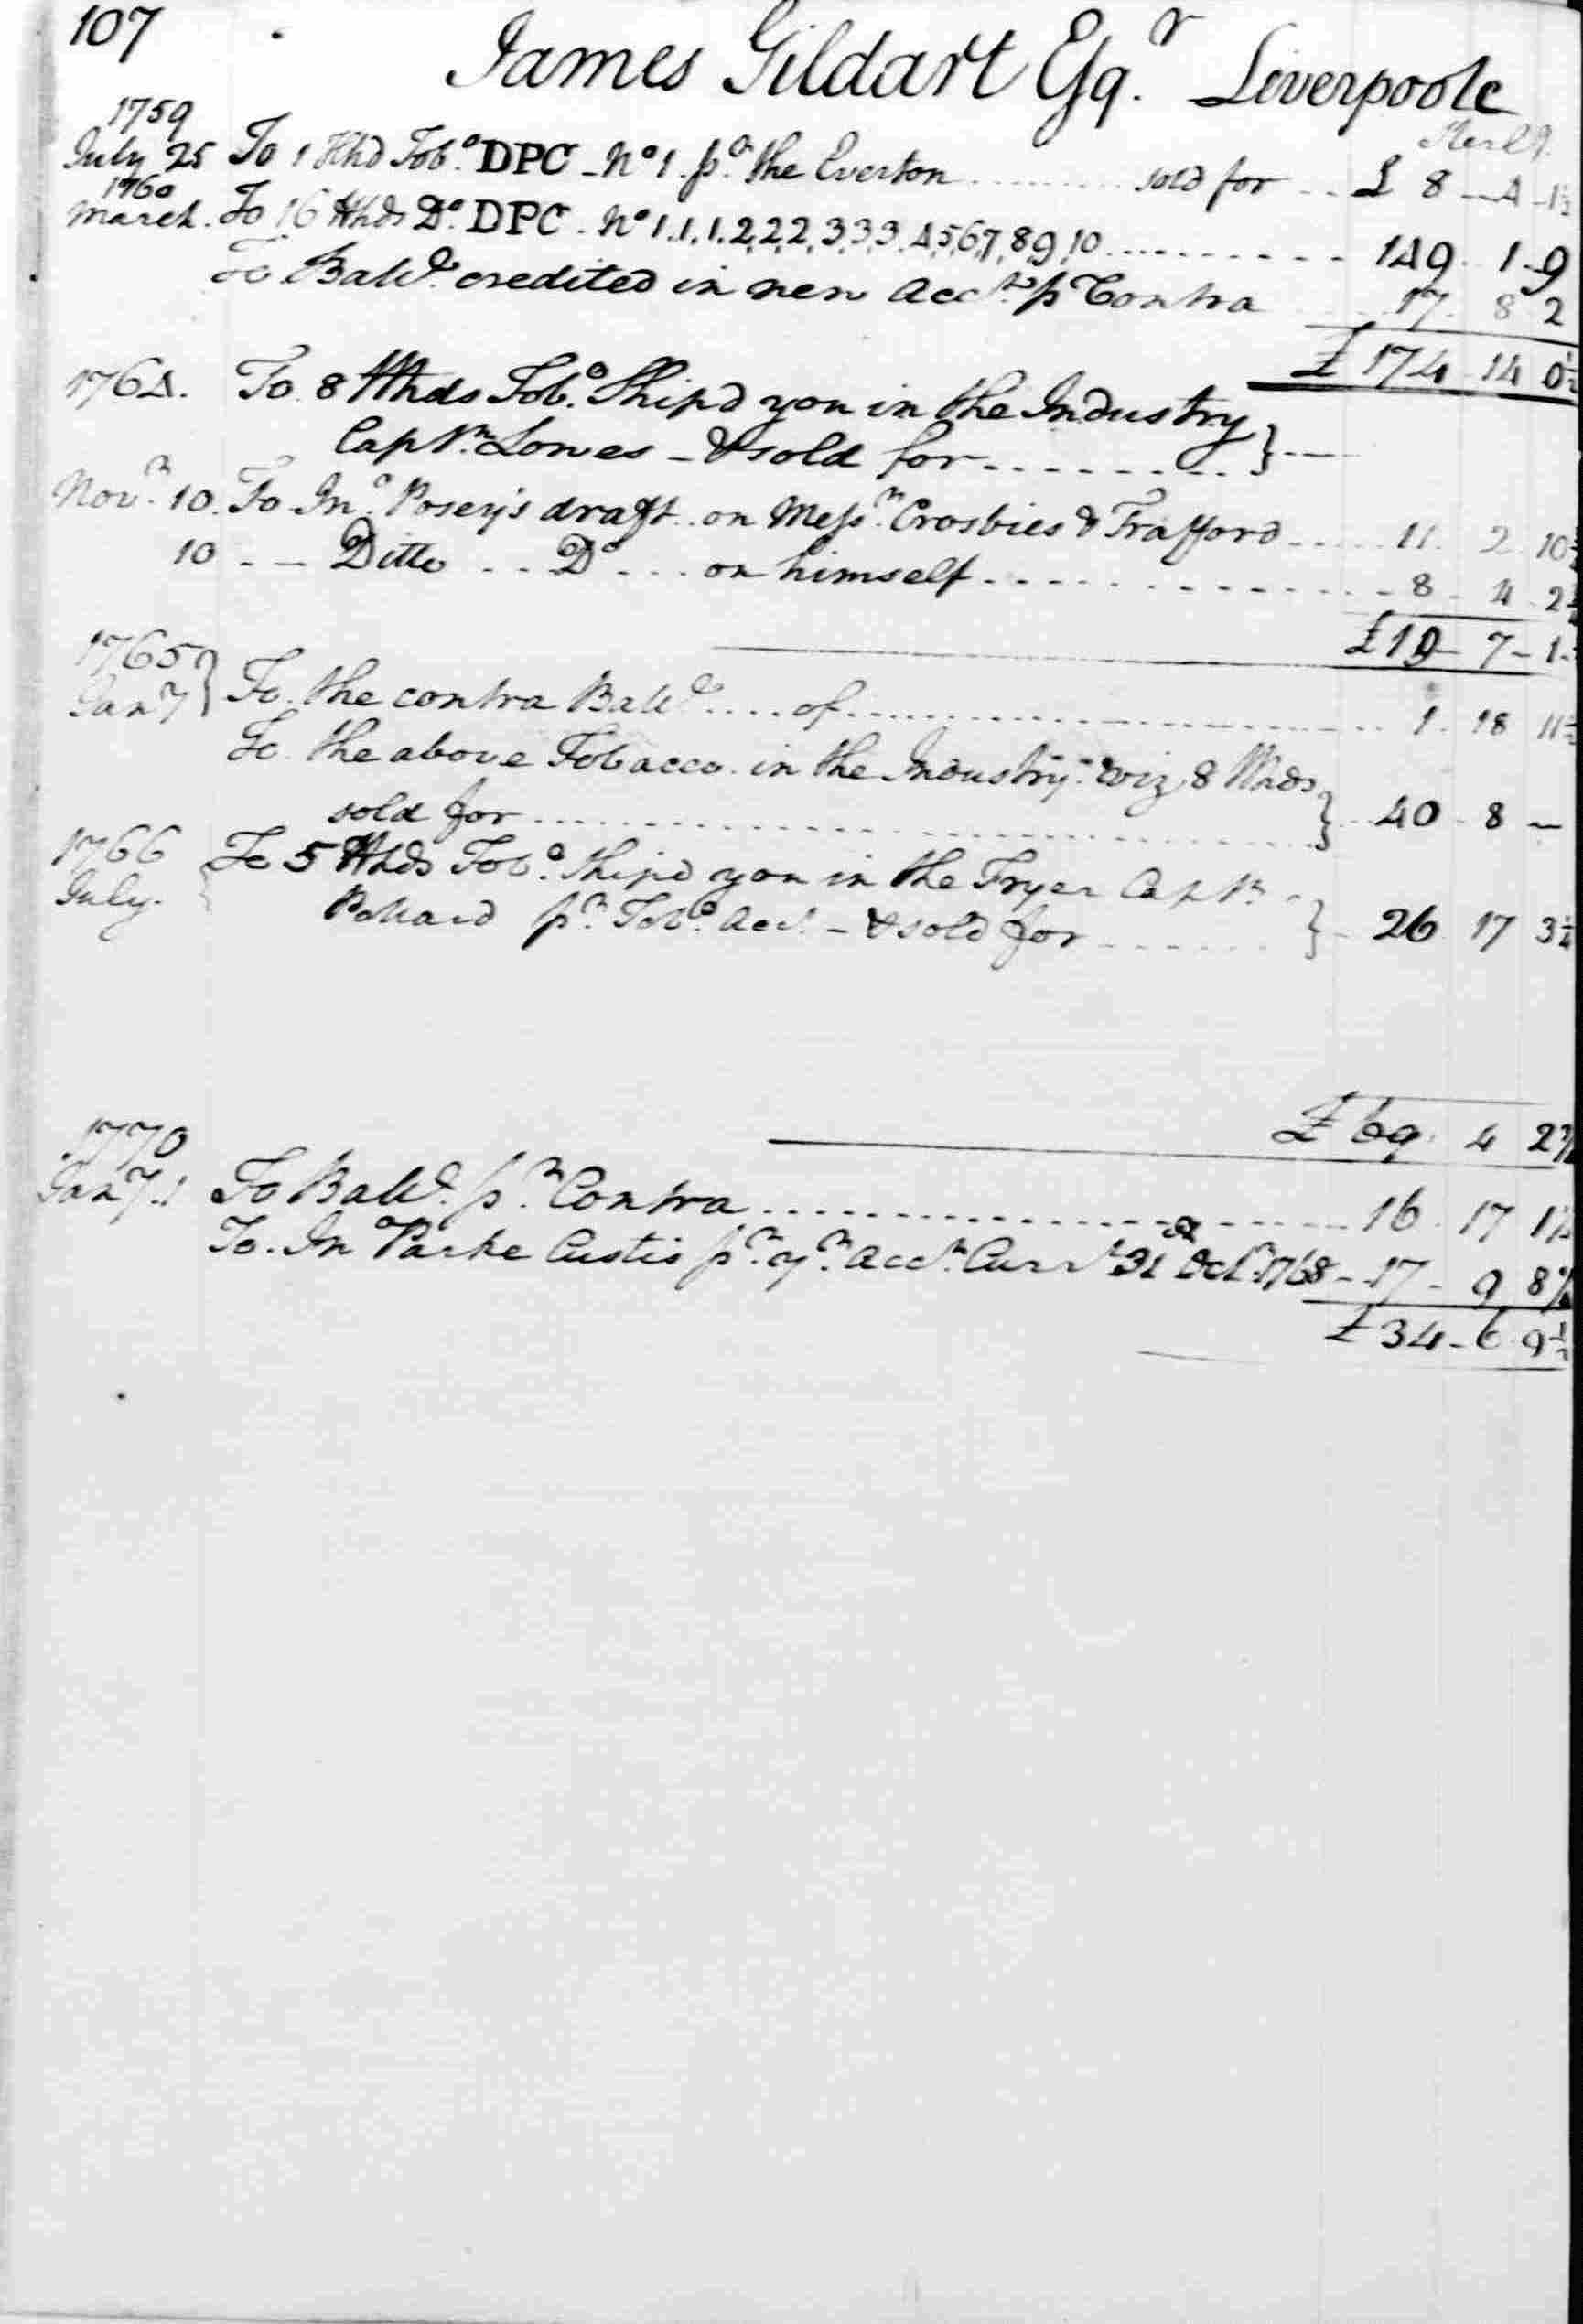 107
James Gildart Esqr. Liverpoole
Sterlg.
1759
July 25 To 1 Hhd Tobo. DPC - No 1. pr. the Everton ......... sold for ... £ 8 - 4 - 1½
1760
March. To 16 Hhds Do. DPC . No 1.1.1.2,2,2,3,3,3.4,5,6,7,8,9,10 .......... 149 . 1 - 9
To Balle. credited in new Acct. p Contra 17. 8 2
£ 174 - 14 0½
1764. To 8 Hhds Tobo. Shipd you in the Industry }
Captn. Lowes - & sold for ........ } ---
Novr. 10. To Jno. Posey's draft.. on Messrs. Crosbies & Trafford ..... 11. 2 10
10 - - Ditto ... Do ... on himself .............. 8 - 4 - 2
£19 - 7 - 1
1765 }
Jany } To. the contra Balle .... of ...................... 1. 18 11
To. the above Tobacco. in the Industry. viz. 8 Hhds }
sold for ............................ } ... 40 - 8 -
1766
July. To 5 Hhds Tobo. Shipd you in the Fryer Captn. }
Pollard pr. Tobo. Acct. - & sold for ....... } - 26 17 3¼
£ 69. 4 2
1770
Jany. 1 To Balle. pr. Contra ................... 16. 17 1
To. Jno Parke Custis pr. yr. Acct. Currt 31 Octr. 1768 - 17 - 9 8
£ 34 - 6 9½